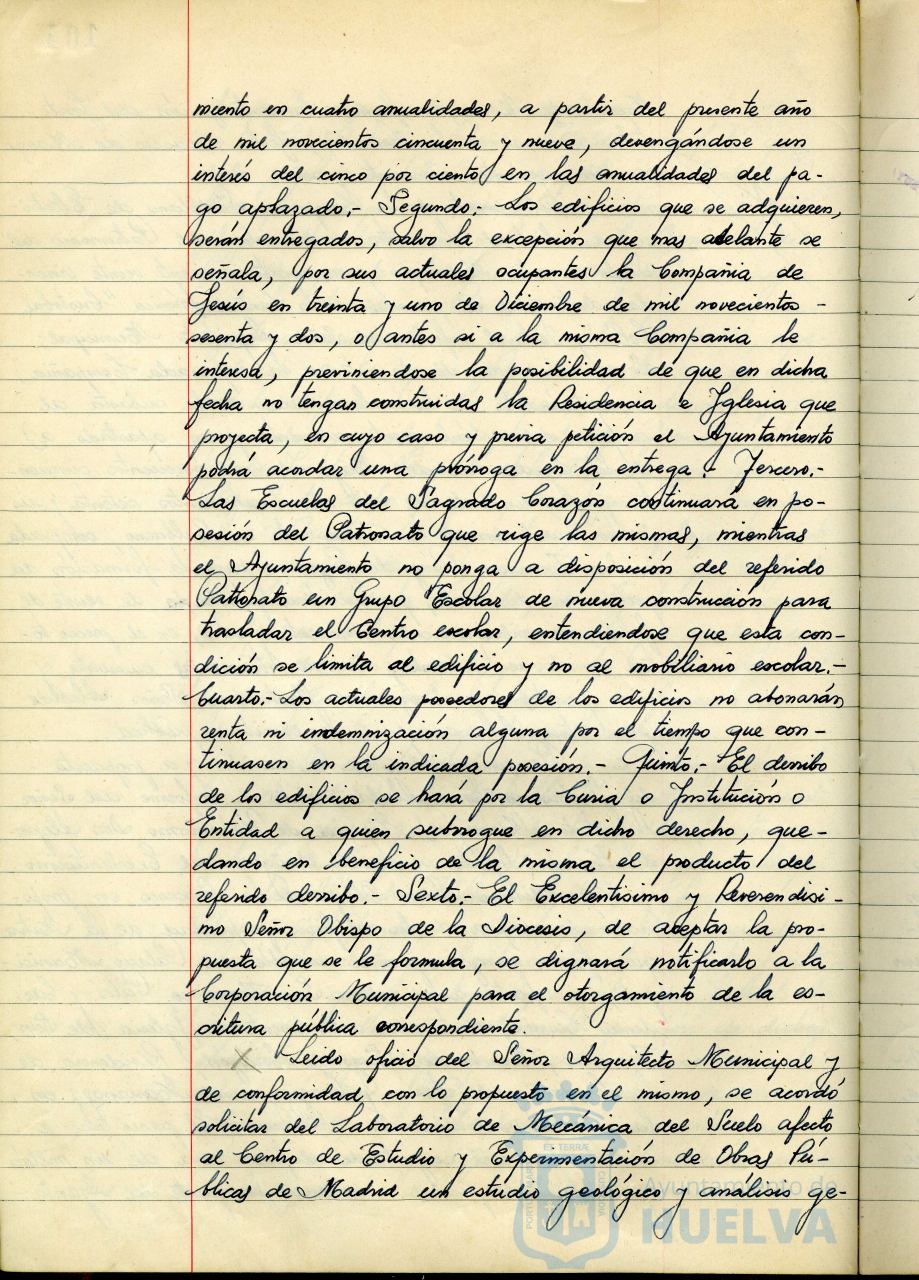 miento en cuatro anualidades, a partir del presente año
de mil novecientos cincuenta y nueve, devengándose un
interés del cinco por ciento en las anualidades del pa-
go aplazado.- Segundo.- Los edificios que se adquieren,
serán entregados, salvo la excepción que mas adelante se
señala, por sus actuales ocupantes la Compañia de
Jesús en treinta y uno de Diciembre de mil novecientos -
sesenta y dos, o antes si a la misma Compañia le
interesa, previniendose la posibilidad de que en dicha
fecha no tengan construidas la Residencia e Iglesia que
proyecta, en cuyo caso y previa petición el Ayuntamiento
podrá acordar una prórroga en la entrega.- Tercero.-
Las Escuelas del Sagrado Corazón continuará en po-
sesión del Patronato que rige las mismas, mientras
el Ayuntamiento no ponga a disposición del referido
Patronato un Grupo Escolar de nueva construcción para
trasladar el Centro escolar, entendiendose que esta con-
dición se limita al edificio y no al mobiliario escolar.-
Cuarto.- Los actuales poseedores de los edificios no abonarán
renta ni indemnización alguna por el tiempo que con-
tinuasen en la indicada posesión.- Quinto.- El derribo
de los edificios se hará por la Curia o Institución o
Entidad a quien subrogue en dicho derecho, que-
dando en beneficio de la misma el producto del
referido derribo.- Sexto.- El Excelentisimo y Reverendisi-
mo Señor Obispo de la Diocesis, de aceptar la pro-
puesta que se le formula, se dignará notificarlo a la
Corporación Municipal para el otorgamiento de la es-
critura pública correspondiente.
X Leido oficio del Señor Arquitecto Municipal y
de conformidad con lo propuesto en el mismo, se acordó
solicitar del Laboratorio de Mecánica del Suelo afecto
al Centro de Estudio y Experimentación de Obras Pú-
blicas de Madrid un estudio geológico y análisis ge-
Ayuntamiento de
HUELVA